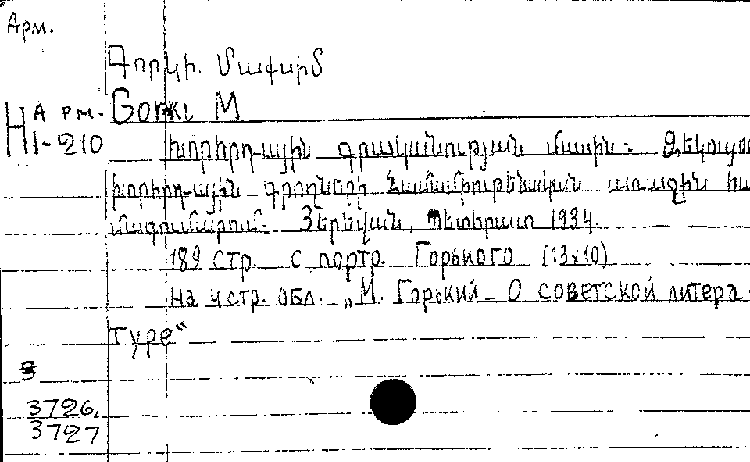 Арм.
Գորկի. Մաքսիմ
Н Арм. Gorki M
II-210 Խորհրդային գրականության մասին. Զեկուցում
խորհրդային գրողների համամիութենական առաջին հա
մագումարում. Յերևան, Պետհրատ 1934.
189 стр. с портр. Горького (13x10)
На 4 стр. обл. „М. Горький - О советской литера-
туре“
3
3726,
3727